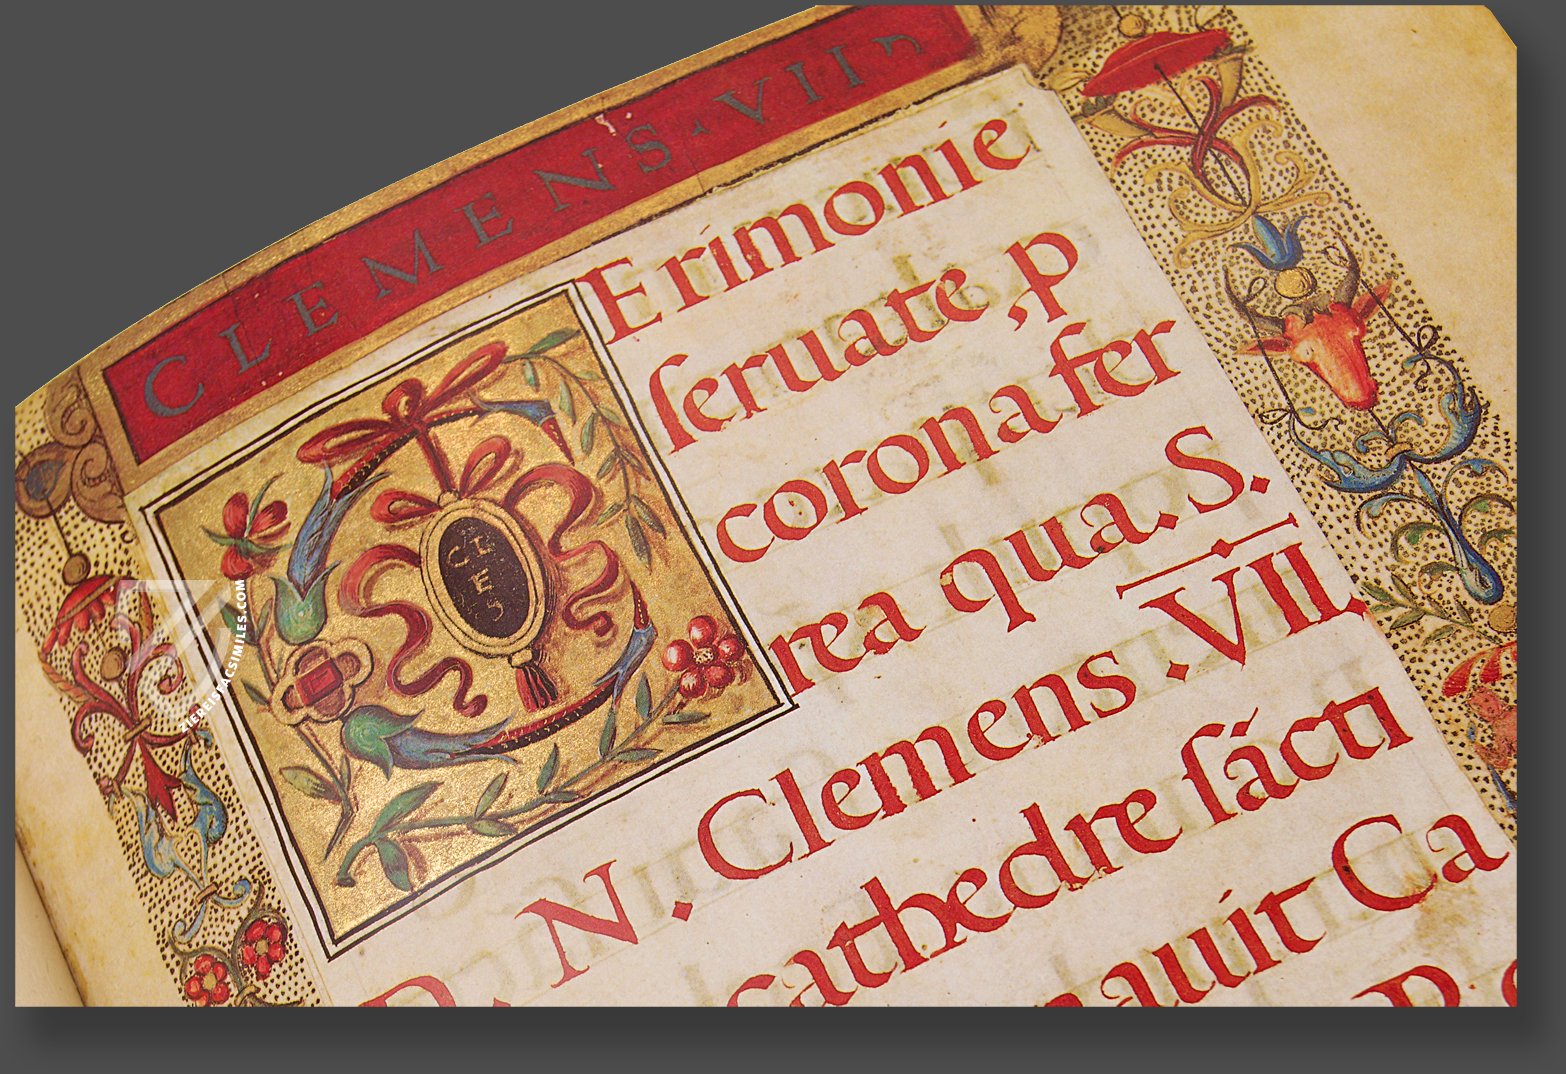 CLEMENS · VII
CErimonie
ſeruate, p
corona fer
rea qua. S.
D. N. Clemens .VII.
cathedre ſácti
auit Ca
CL
E
ZIEREISFACSIMILES.COM